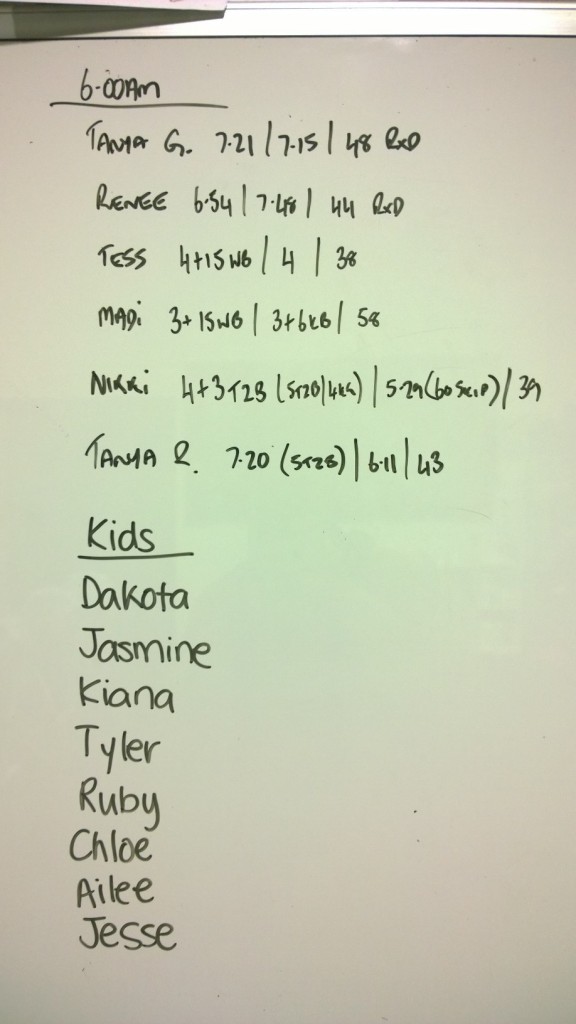 6-00AM
TANYA G. 7.21 | 7.15 | 48 RxD
RENEE 6.54 | 7.48 | 44 RxD
TESS 4+15WB | 4 | 38
MADi 3+15WB | 3+6KB | 58
NIKKi 4+3T2B (5T2B|4KG) | 5.29 (60 SKIP) | 39
TANYA R. 7.20 (5T2B) | 6.11 | 43
Kids
Dakota
Jasmine
Kiana
Tyler
Ruby
Chloe
Ailee
Jesse